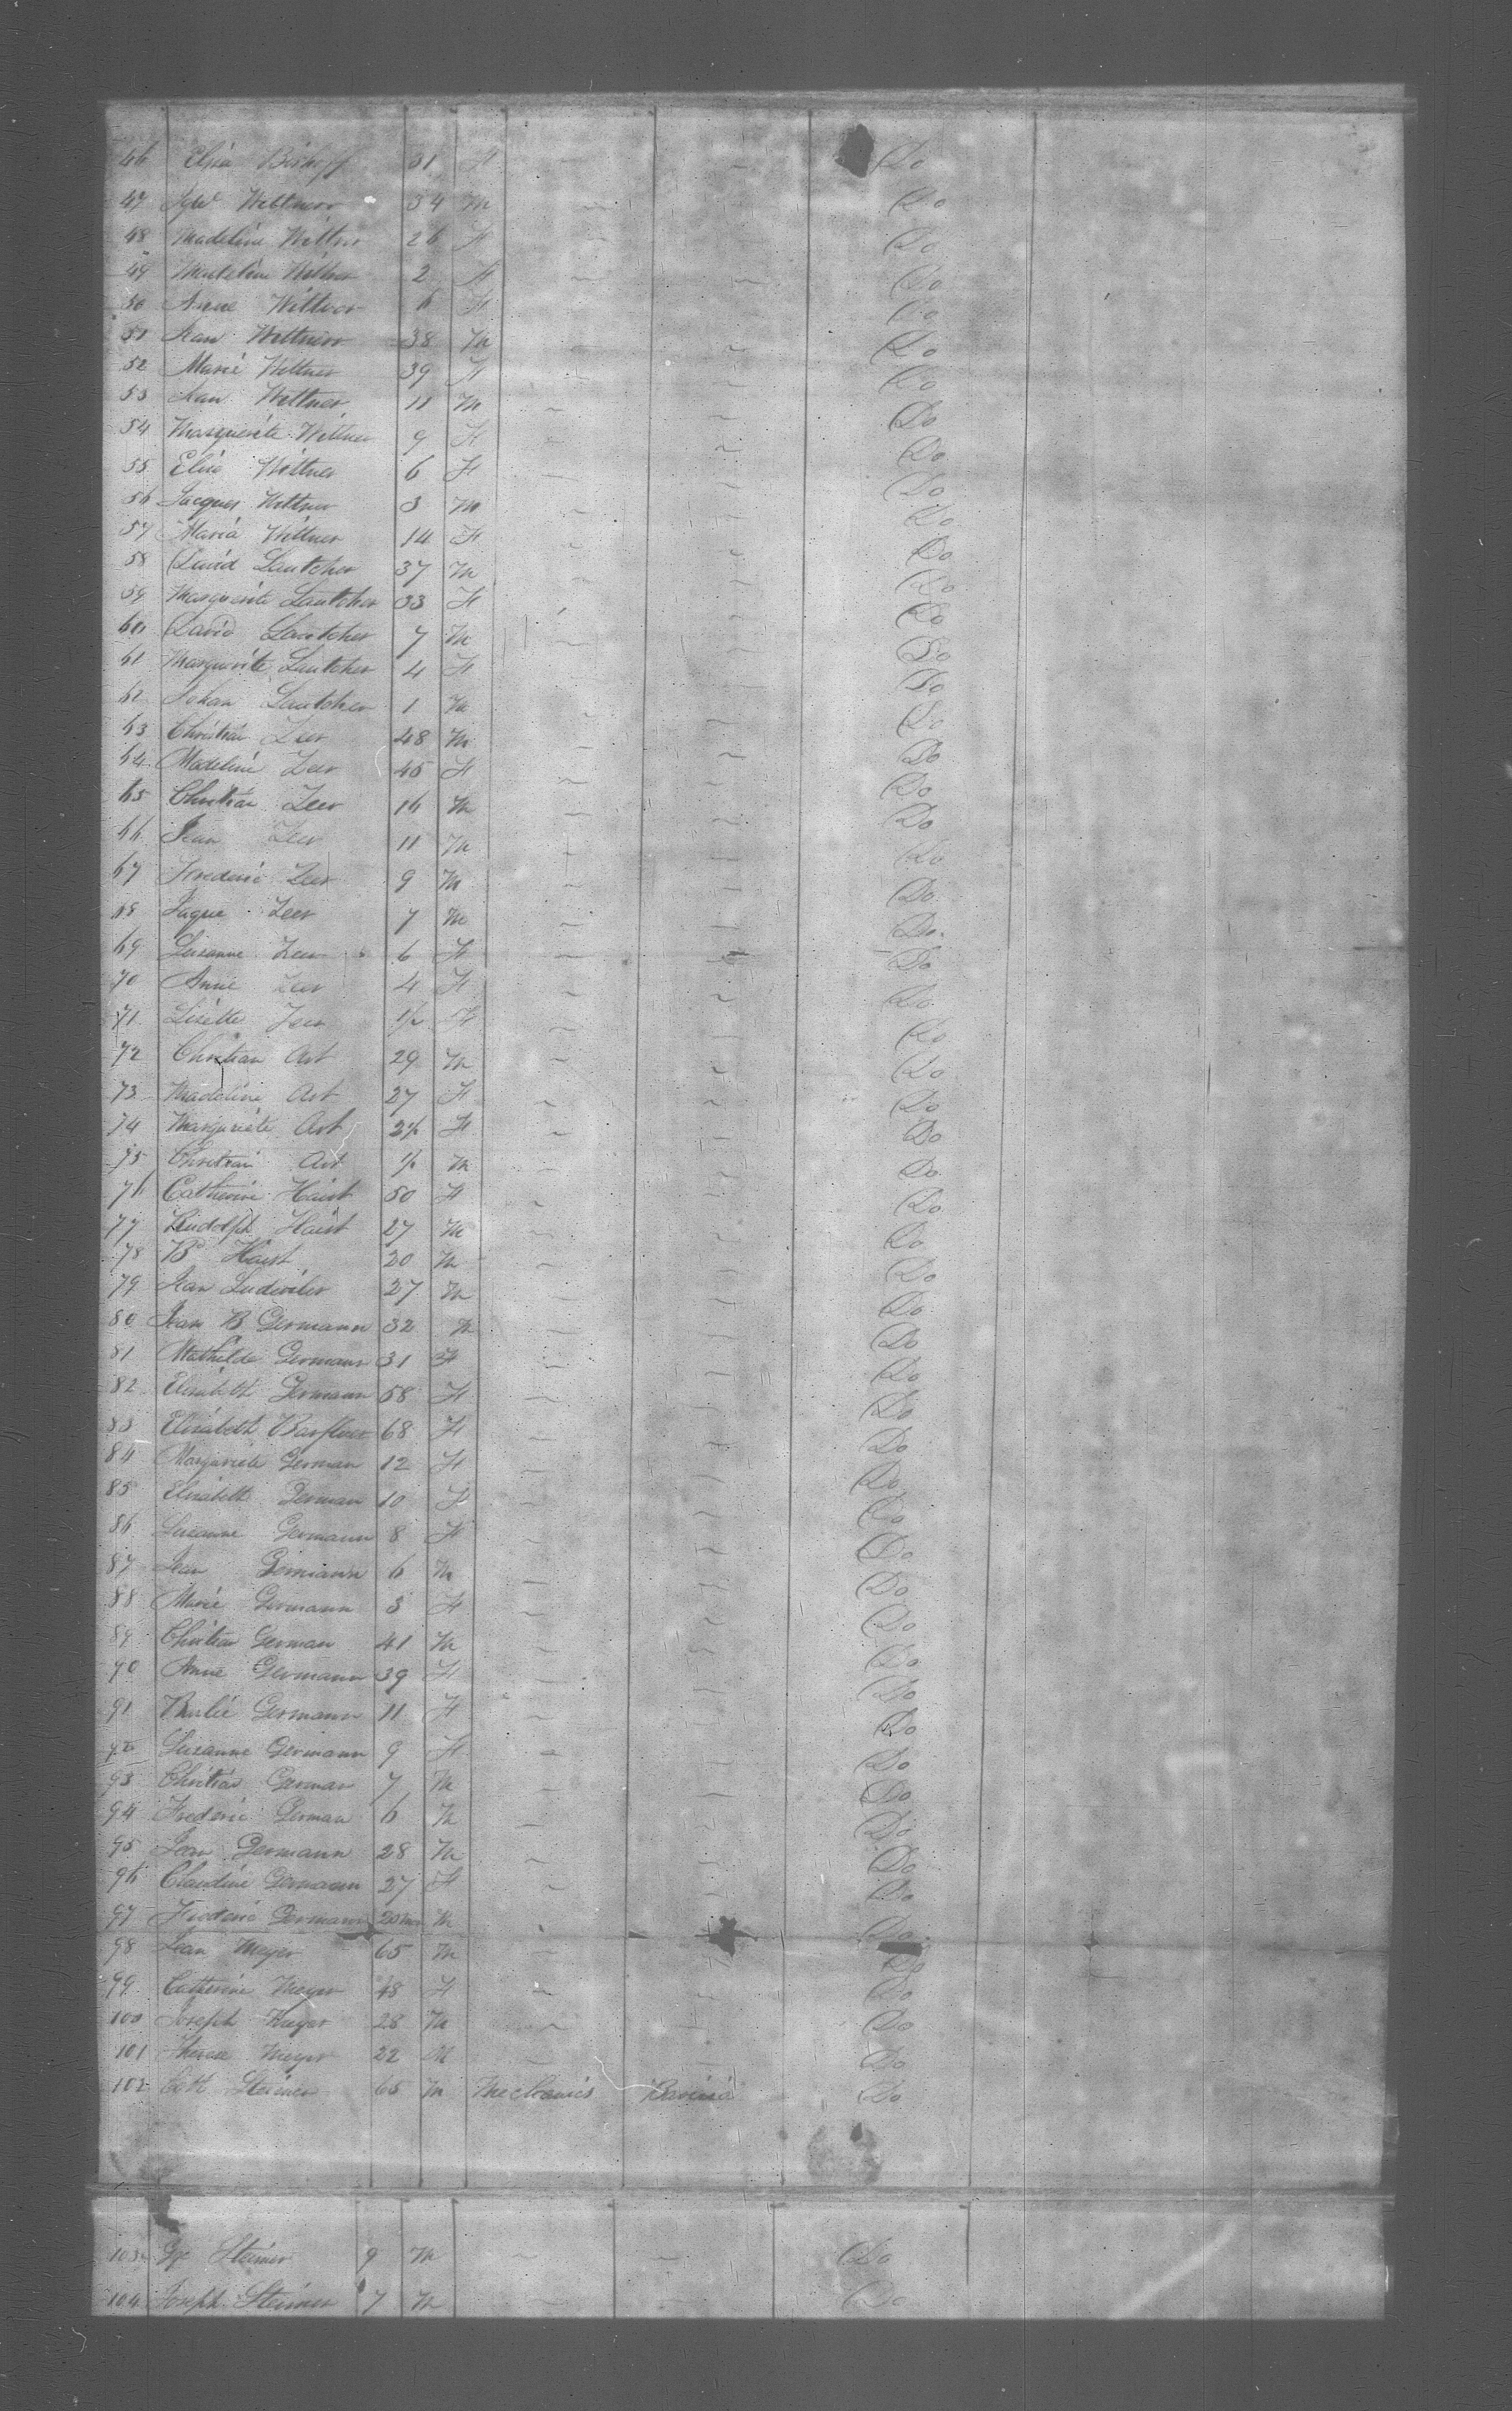 46 Elisa Bishoff 31 F Do
47 Wittmer 34 M Do
48 Madeline Wittner 26 F Do
49 Madeline Wittner 2 F Do
50 Anne Wittner 6 F Do
51 Jean Wittner 38 M Do
52 Marie Wittner 39 F Do
53 Jean Wittner 11 M Do
54 Marguerite Wittner 9 F Do
55 Elise Wittner 6 F Do
56 Jacques Wittner 3 M Do
57 Maria Wittner 14 F Do
58 David Lautcher 37 M Do
59 Marguerite Lautcher 33 F Do
60 David Lautcher 7 M Do
61 Marguerite Lautcher 4 F Do
62 Johan Lautcher 1 M Do
63 Christian Zeer 48 M Do
64 Madeline Zeer 45 F Do
65 Christian Zeer 16 M Do
66 Jean Zeer 11 M Do
67 Frederic Zeer 9 M Do
68 Jaque Zeer 7 M Do
69 Suzanne Zeer 6 F Do
70 Anne Zeer 4 F Do
71 Lisette Zeer 1/2 F Do
72 Christian Art 29 M Do
73 Madeline Art 27 F Do
74 Marguerite Art F Do
75 Christian Art M Do
76 Catherine Haist 50 F Do
77 Rudolph Haist 27 M Do
78 B Haist 20 M Do
79 Jean Ludwiler 27 M Do
80 Jean B Germann 32 M Do
81 Mathilde Germann 31 F Do
82 Elisabeth Germann 58 F Do
83 Elisabeth 68 F Do
84 Marguerite German 12 F Do
85 Elisabeth German 10 F Do
86 Suzanne Germann 8 F Do
87 Jean Germann 6 M Do
88 Marie Germann 3 F Do
89 Christian German 41 M Do
90 Anne Germann 39 F Do
91 Germann 11 F Do
92 Suzanne Germann 9 F Do
93 Christian German 7 M Do
94 Frederic German 6 M Do
95 Jean Germann 28 M Do
96 Claudine Germann 27 F Do
97 Frederic Germann M Do
98 Jean Meyer 65 M Do
99 Catherine Meyer 48 F Do
100 Joseph Meyer 28 M Do
101 Meyer 22 M Do
102 Steiner 65 M Mechanics Bavaria Do
103 Steiner 9 M Do
104 Joseph Steiner 7 M Do